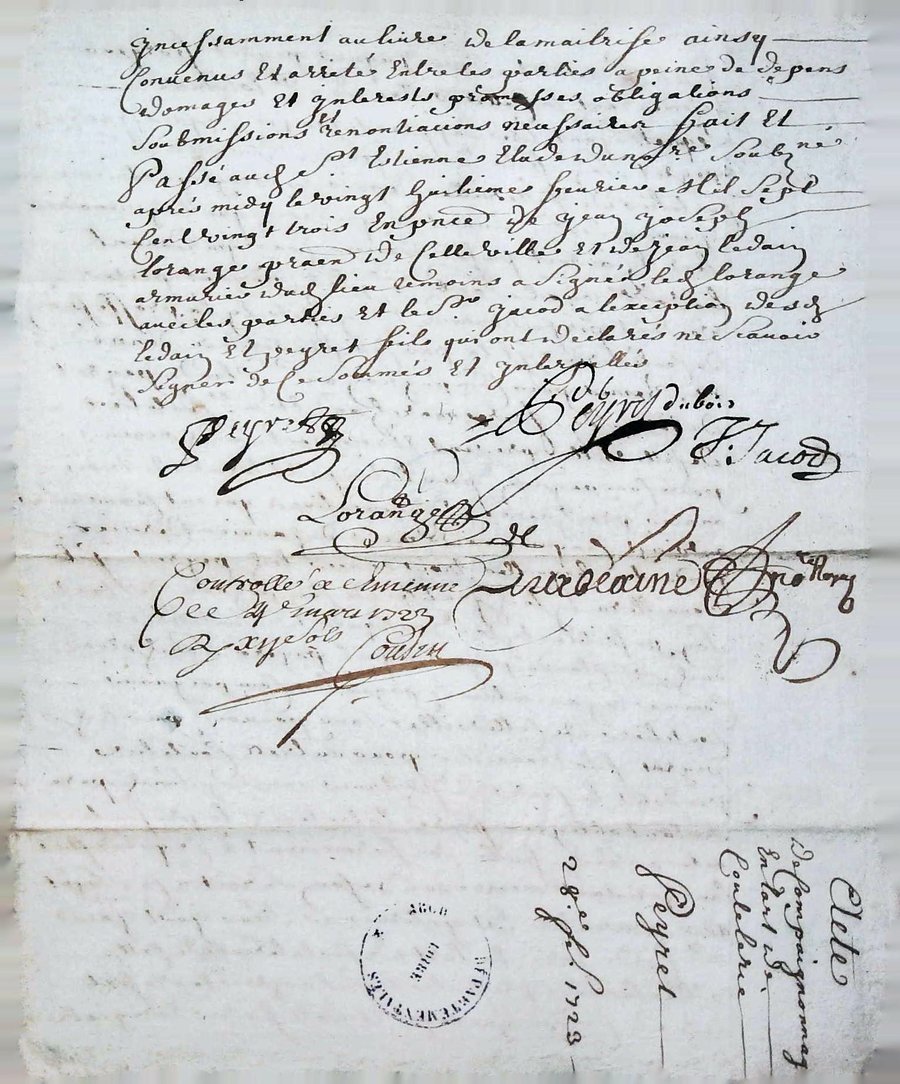 jncessamment au livre de la maitrise ainsy
Convenus Et arreté Entre les parties a peine de depens
domages Et jnterests promesses obligations
Soubmissions Et renontiacions necessaires fait Et
Passé aud St Estienne Etude du nore Soubzné
apres midy le vingt huitieme feurier Mil Sept
Cent vingt trois En pnce de jean joseph
lorange praen de Cette ville Et de jean ledain
armurier dud lieu temoins a Signés led lorange
avec les parties Et le Sr jacod a lexception desd
ledain Et peyret fils qui ont declarés ne Scavoir
Signer de Ce Sommés Et jnterpellés
Peyret
Peyry dubois
F: Jacod
Lorange
Controllé a St Etienne
le 4e mars 1723
R xij sols
Cousin
nore Roy
Acte
de Compaignonnag
En lart de
Coutelerie
Peyret
28e fe. 1723
ARCH
DÉPARTEMENTALES
LOIRE